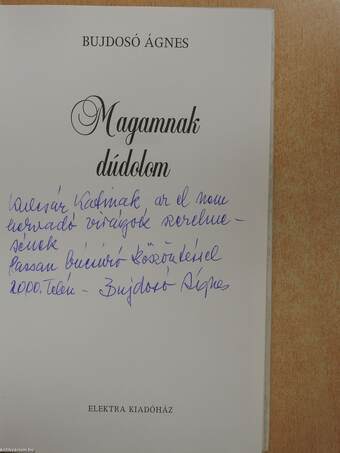 BUJDOSÓ ÁGNES
Magamnak
dúdolom
Kulcsár Katinak, az el nem
hervadó virágok szerelme-
sének
lassan búcsúzó köszöntéssel
2000. Telén - Bujdosó Ágnes
ELEKTRA KIADÓHÁZ